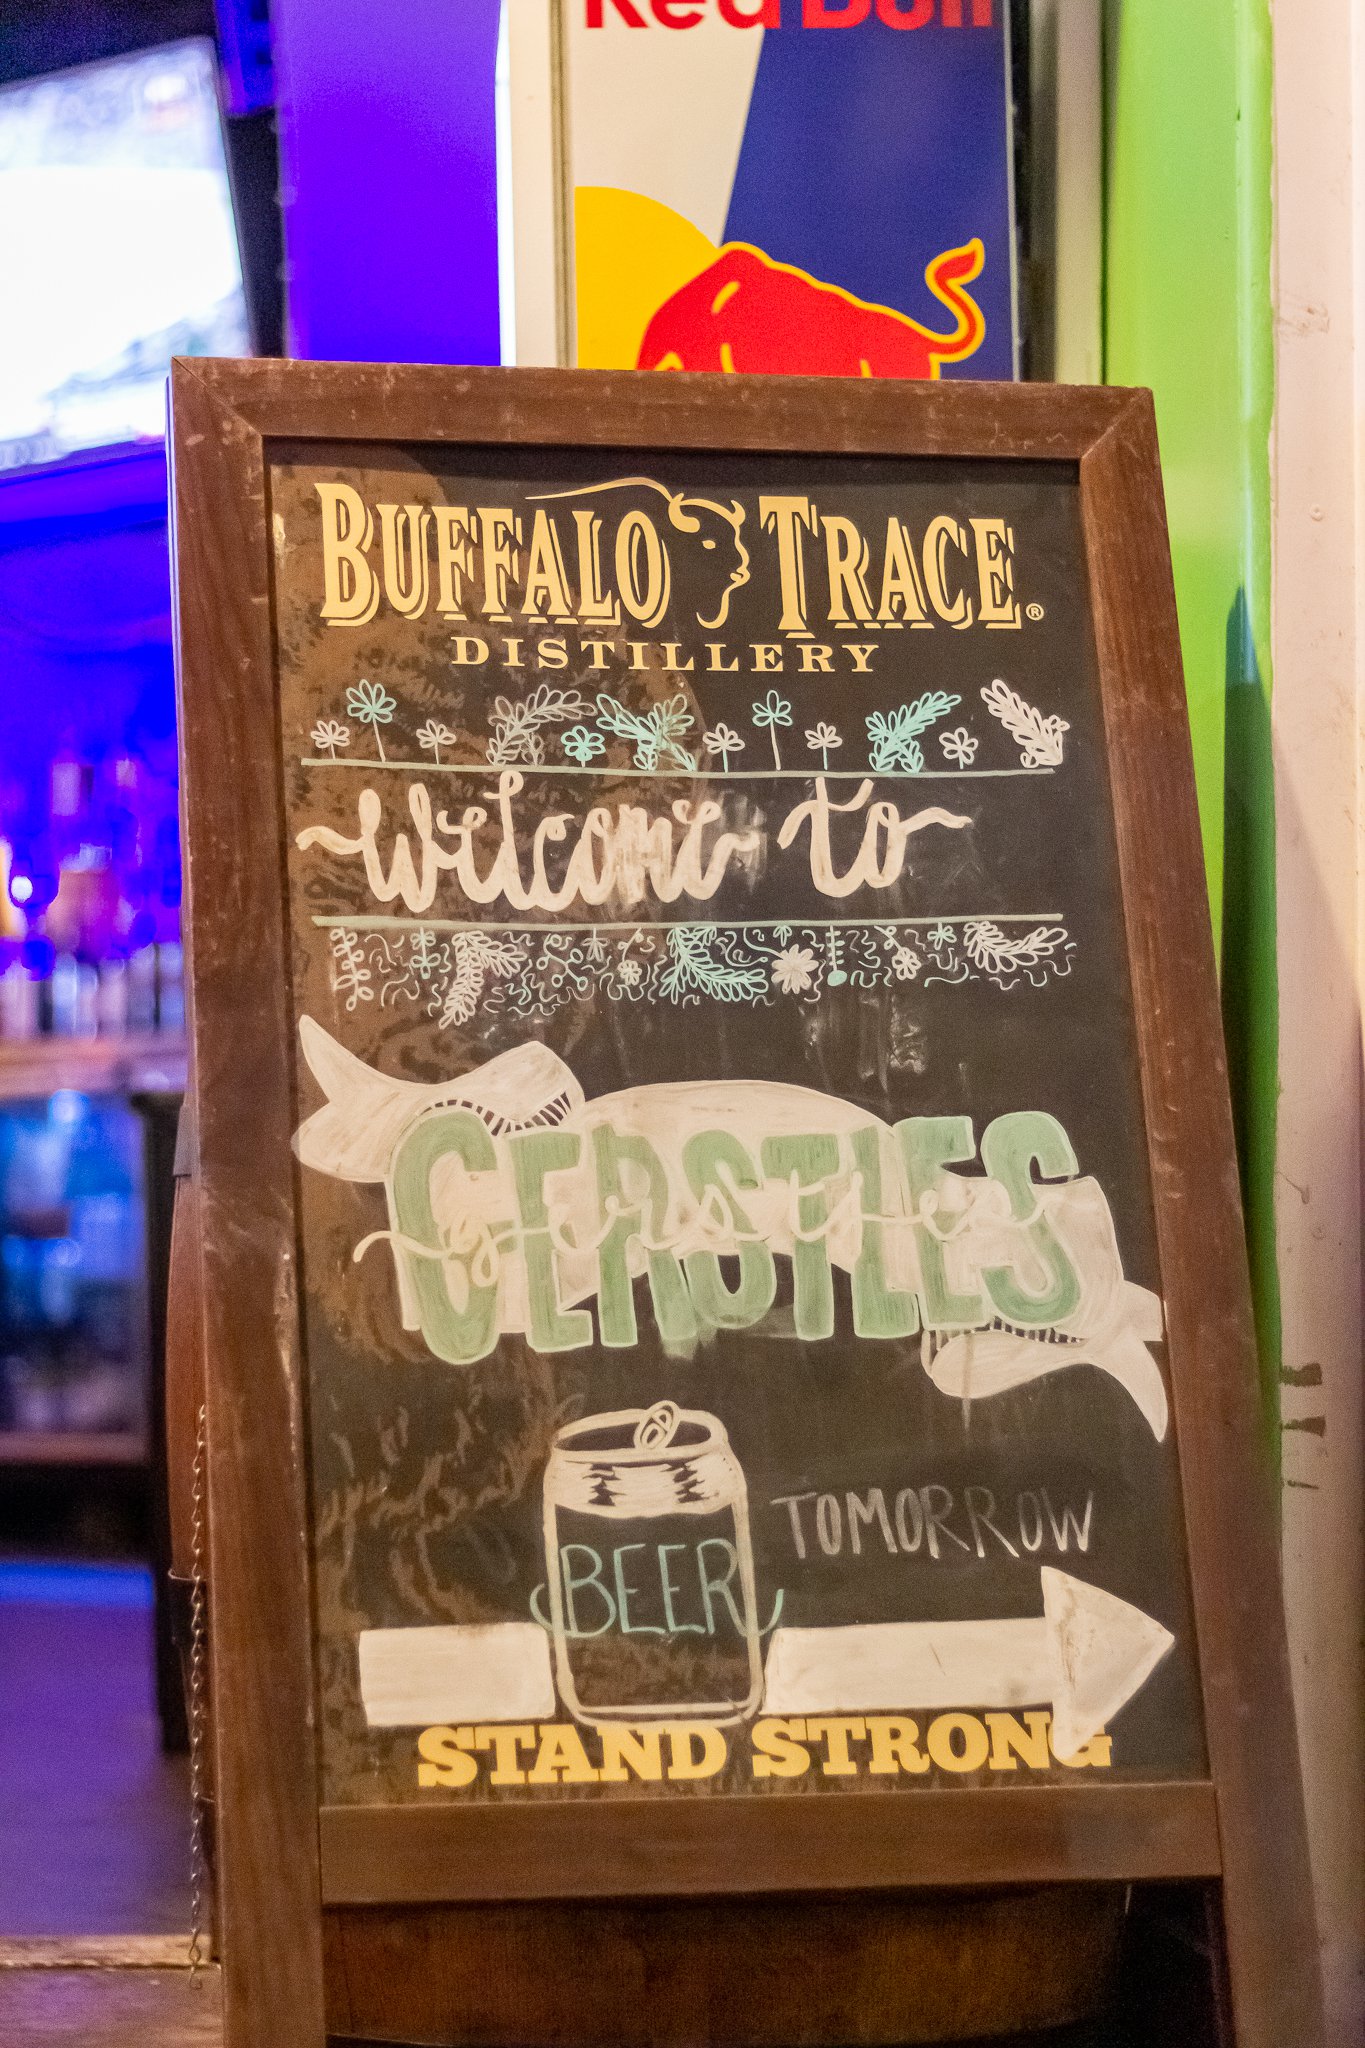 Red Bull
BUFFALO TRACE®
DISTILLERY
welcome to
GERSTLES
gerstles
TOMORROW
BEER
STAND STRONG